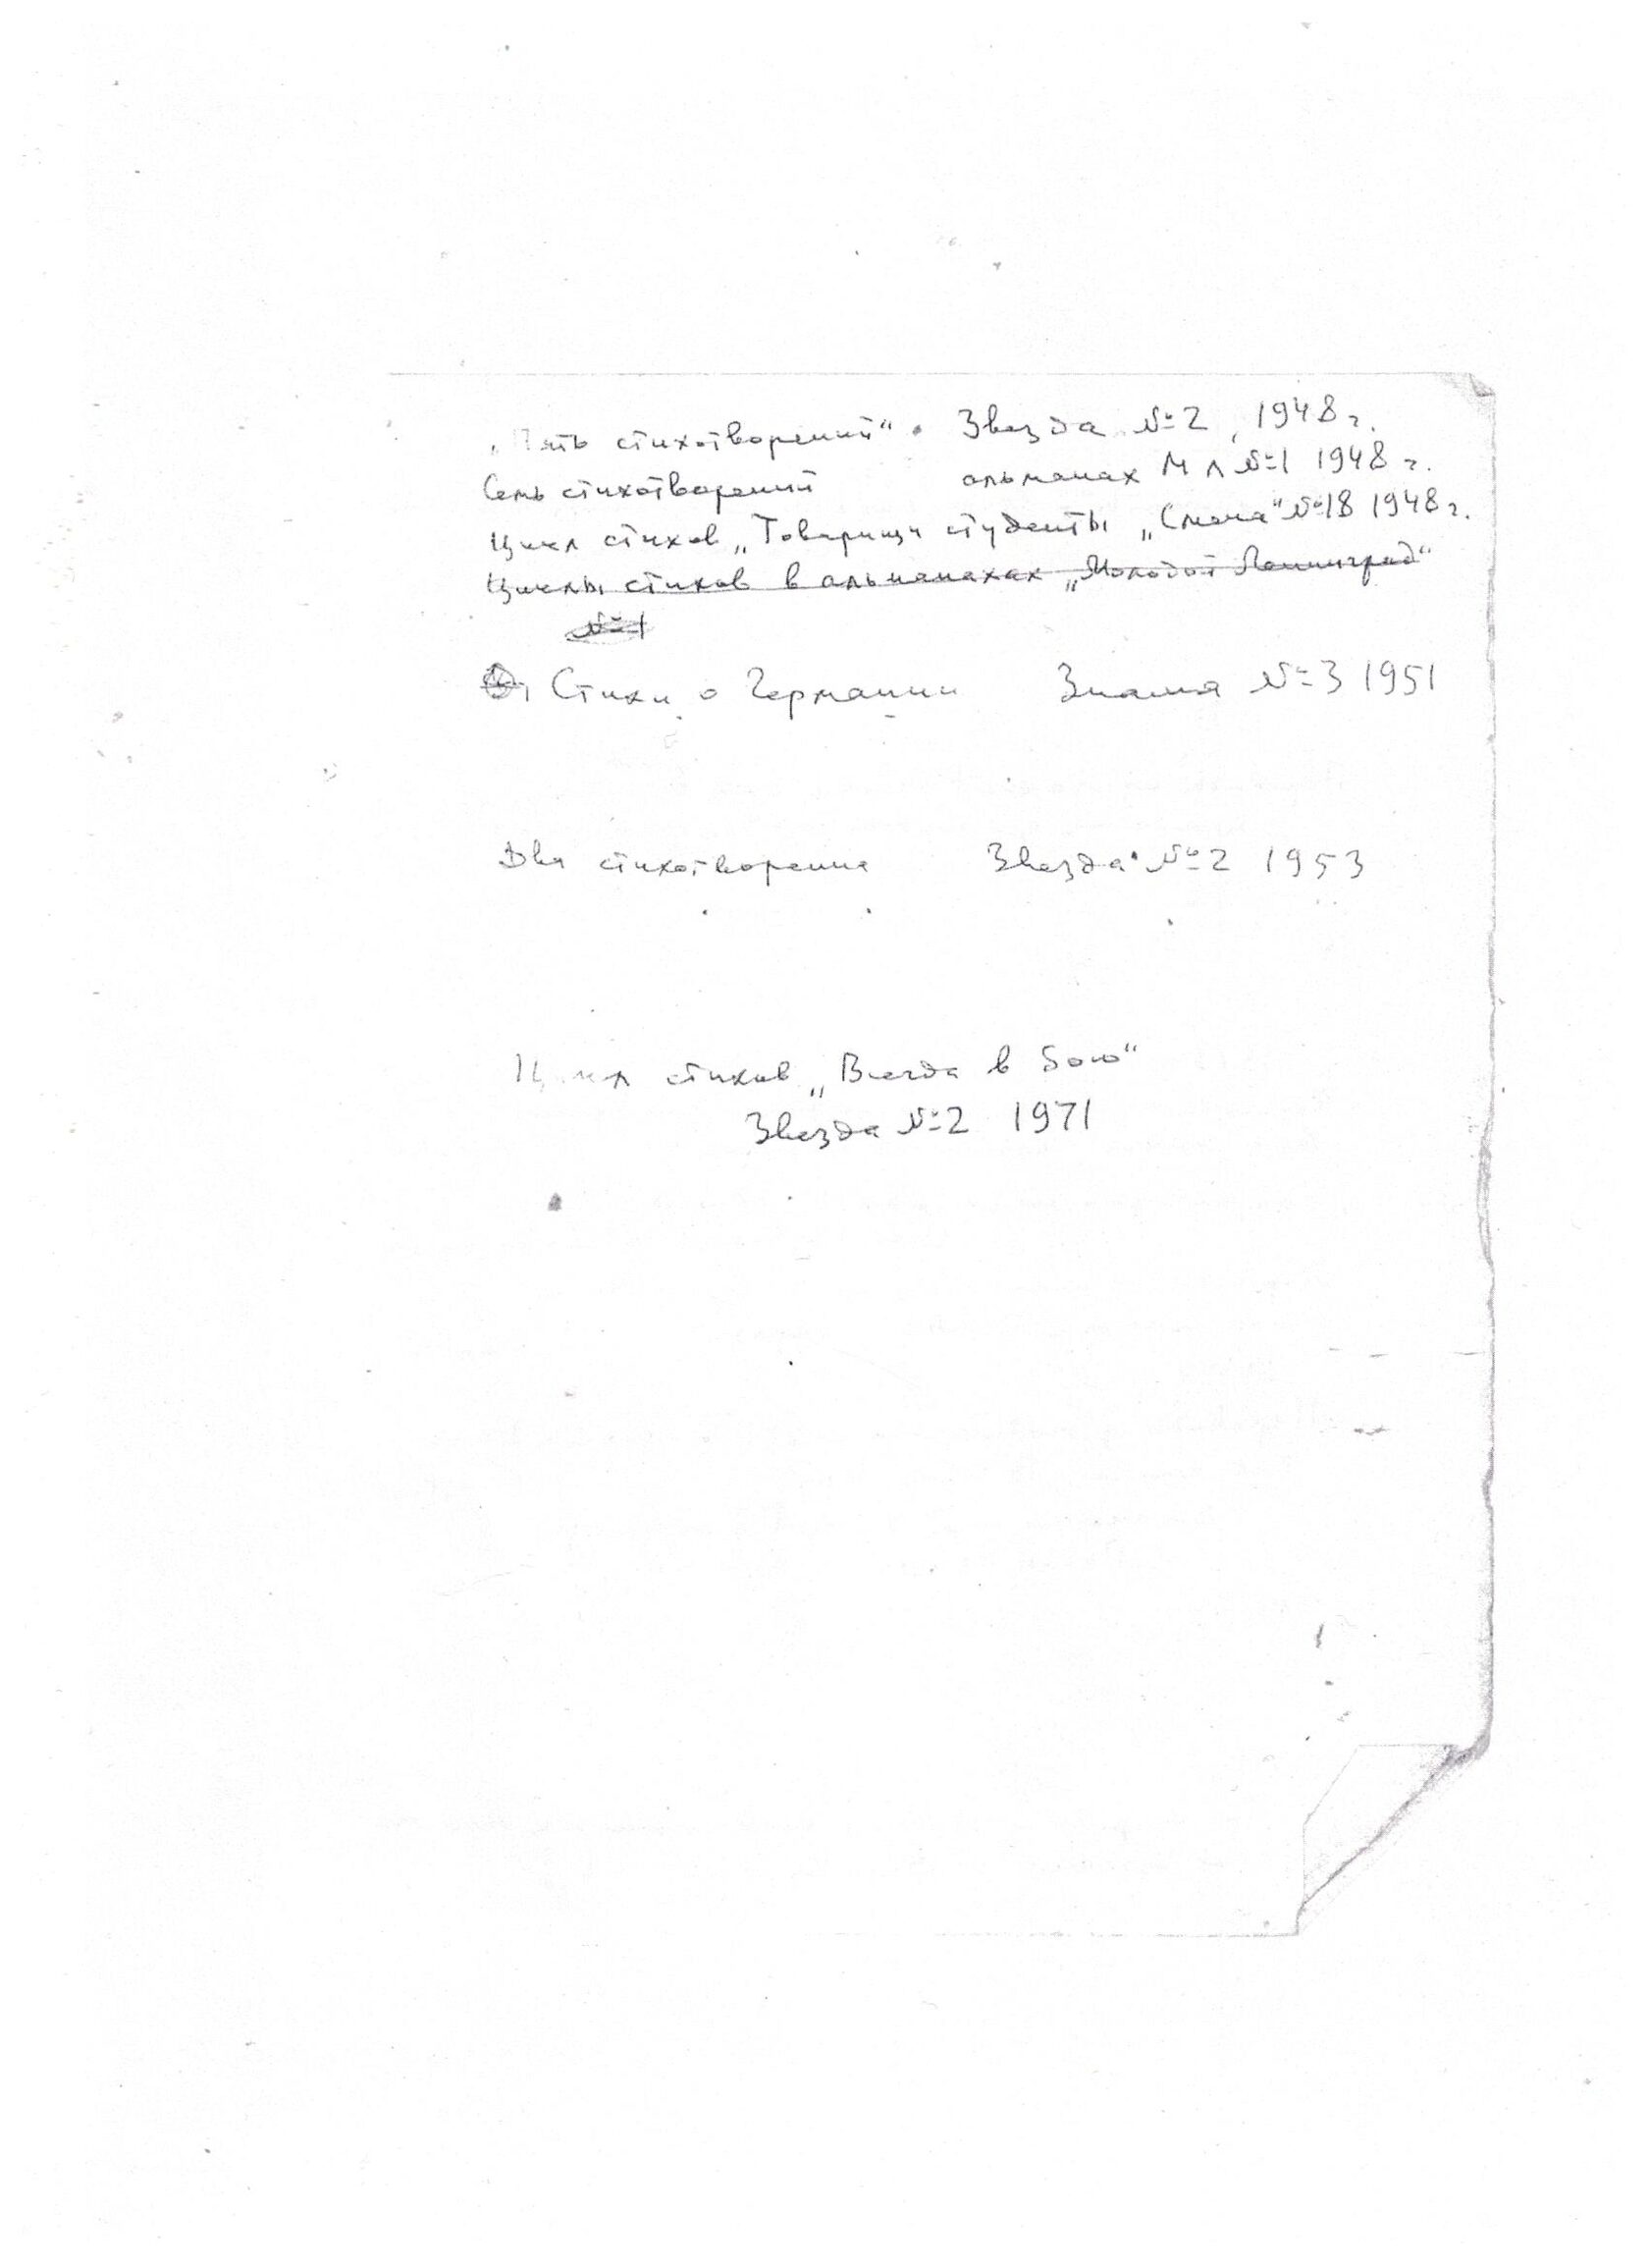 „Пять стихотворений“. Звезда №2, 1948 г.
Семь стихотворений альманах МЛ №1 1948 г.
Цикл стихов „Товарищи студенты „Смена“ №18 1948 г.
Циклы стихов в альманахах „Молодой Ленинград“
№1
Стихи о Германии Знамя №3 1951
Два стихотворения Звезда №2 1953
Цикл стихов „Всегда в бою“
Звезда №2 1971